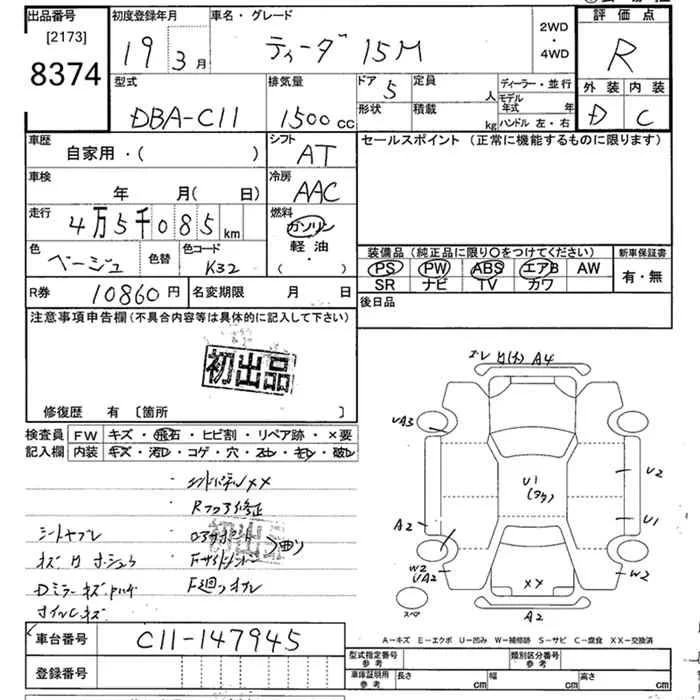 出品番号
[2173]
8374
初度登録年月
19 3月
車名・グレード
ティーダ 15M
2WD
・
4WD
評価点
R
外装 内装
D C
型式
DBA-C11
排気量
1500cc
ドア 5
定員 人
形状
積載 kg
ディーラー・並行
モデル年式 年
ハンドル 左・右
車歴
自家用・( )
シフト
AT
セールスポイント (正常に機能するものに限ります)
車検
年 月( 日)
冷房
AAC
走行
4万5千085km
燃料
ガソリン
軽油
( ・ )
色
ベージュ
色替
色コード
K32
装備品 (純正品に限り○をつけてください)
PS PW ABS エアB AW
SR ナビ TV カワ
新車保証書
有・無
R券 10860円
名変期限 月 日
後日品
注意事項申告欄(不具合内容等は具体的に記入して下さい)
初出品
修復歴 有 [箇所 ]
検査員記入欄
FW キズ・飛石・ヒビ割・リペア跡・×要
内装 キズ・汚レ・コゲ・穴・スレ・キレ・破レ
初出品
A4
UA3
U1
U2
U1
A2
W2
UA2
W2
XX
A2
スペア
A-キズ E-エクボ U-凹み W-補修跡 S-サビ C-腐食 XX-交換済
車台番号
C11-147945
登録番号
型式指定番号 参考
類別区分番号 参考
車庫証明用 参考
長さ cm
幅 cm
高さ cm